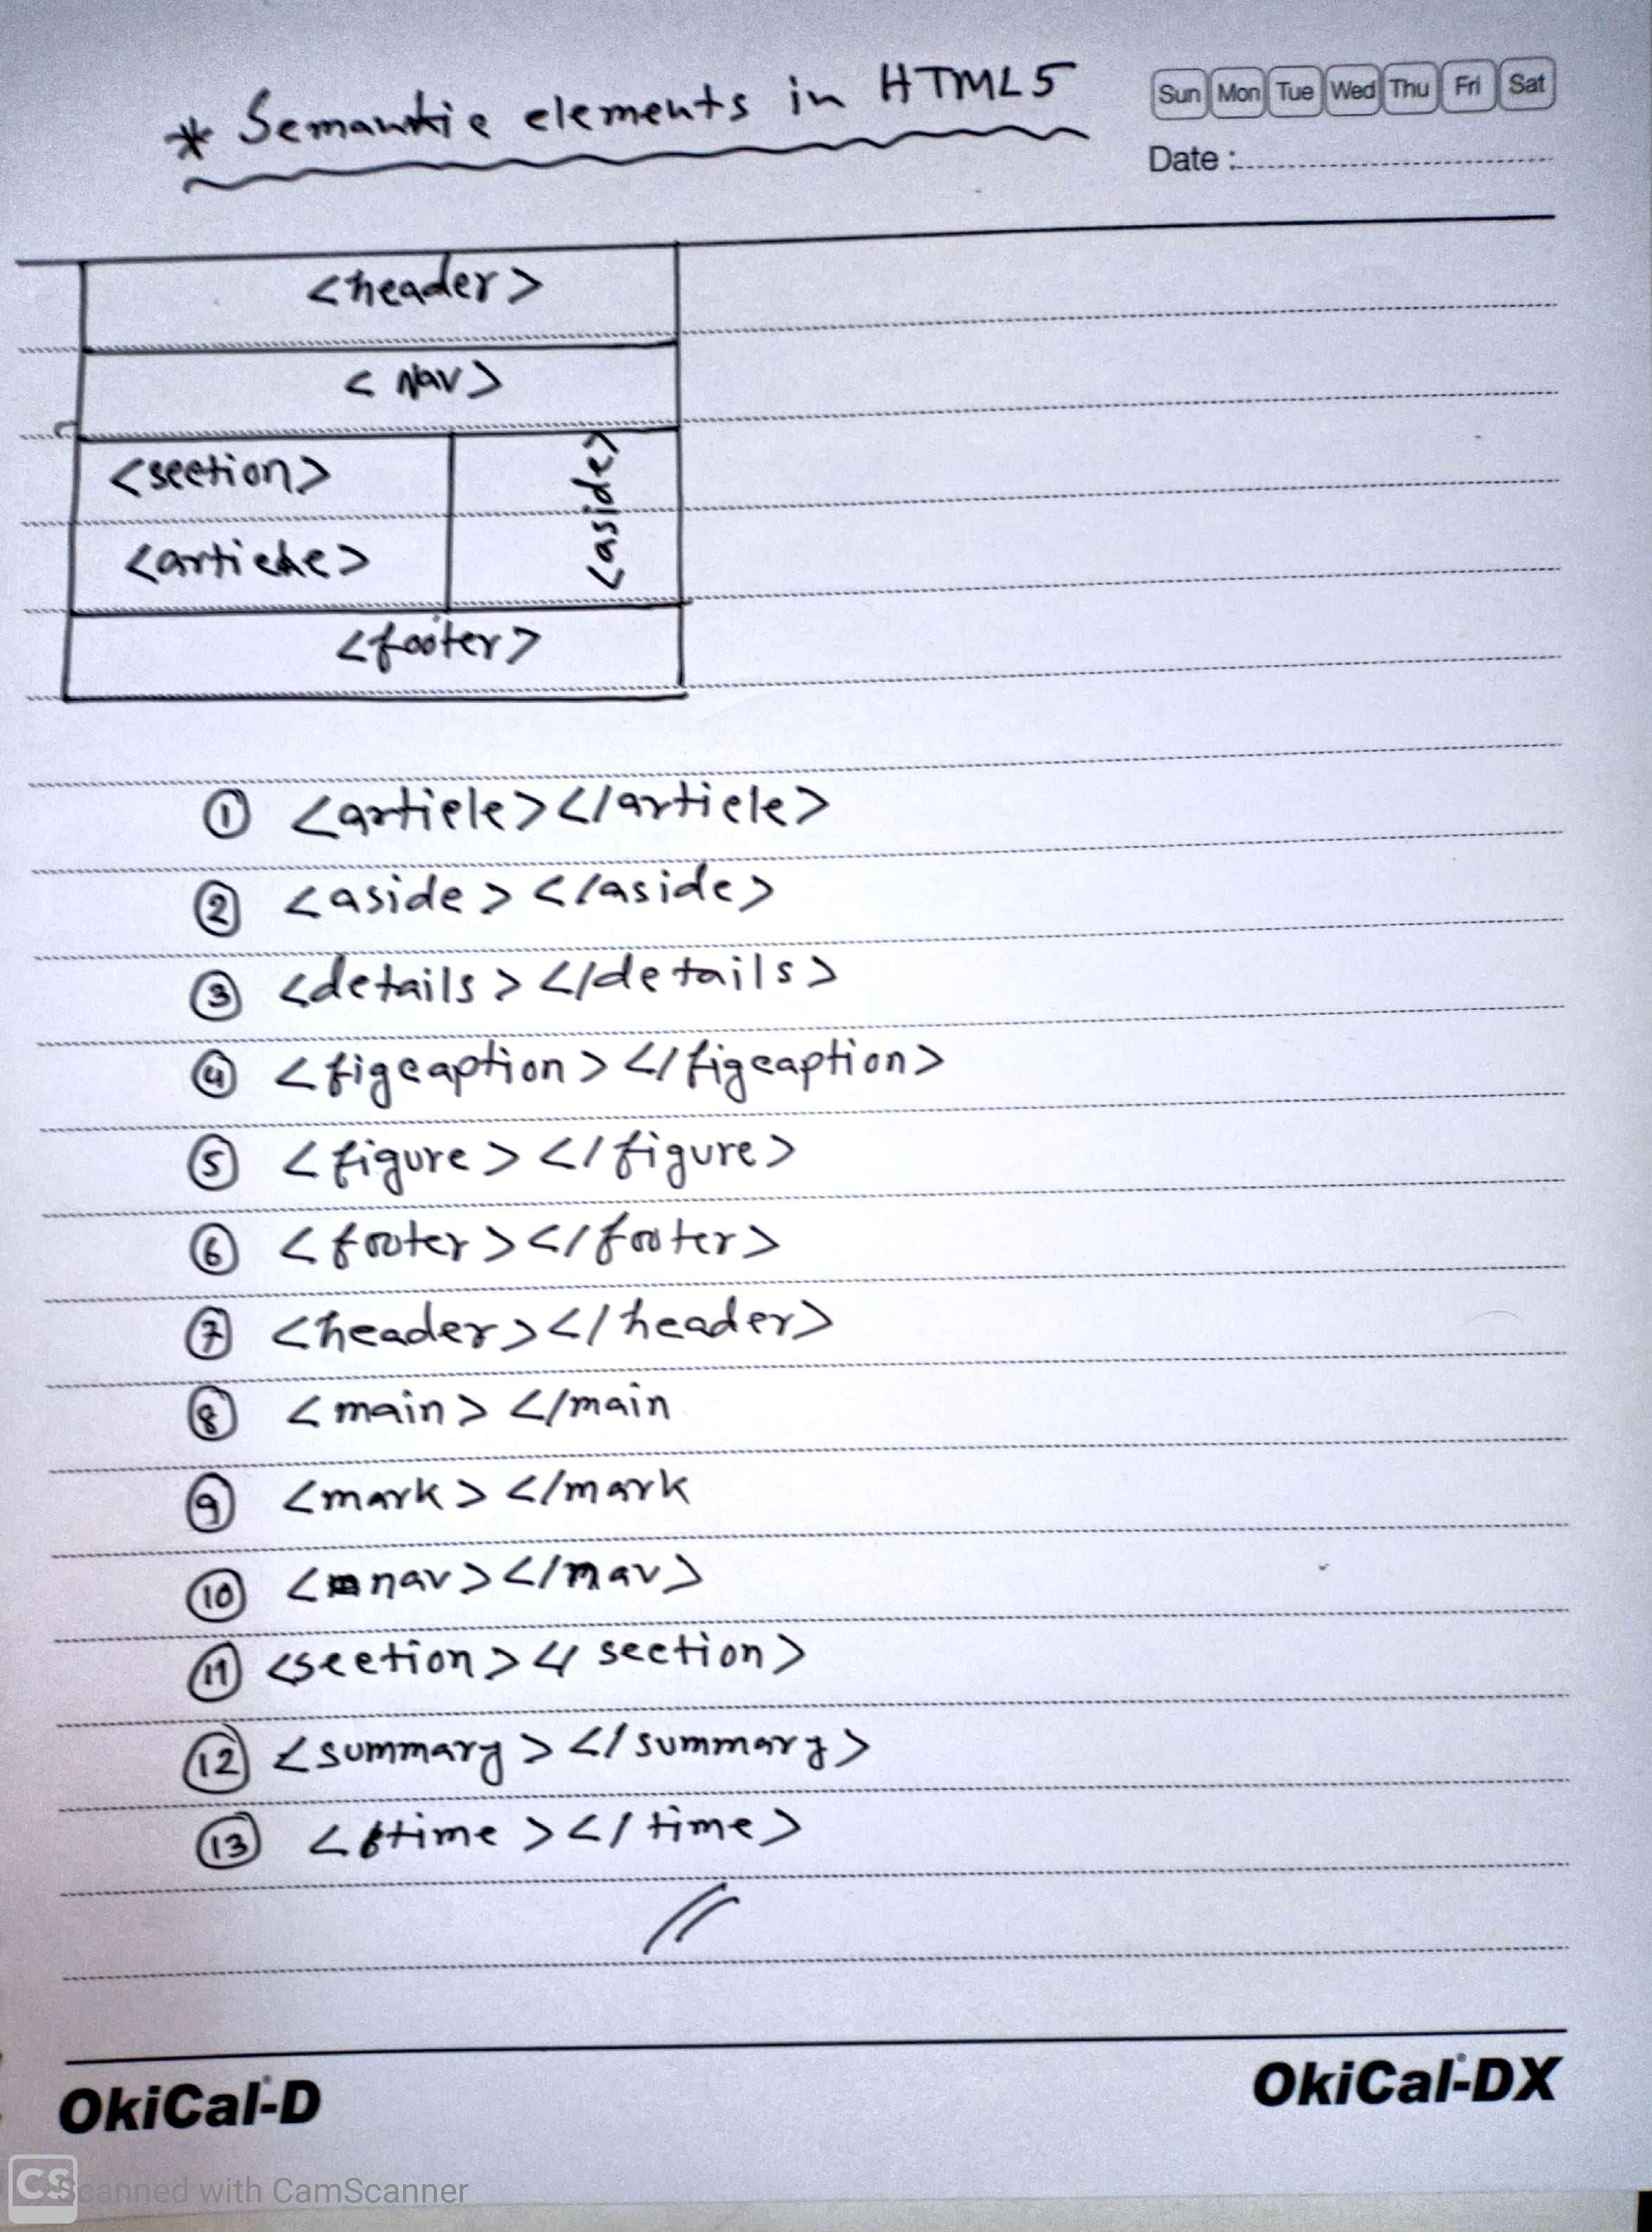 * Semantic elements in HTML5
Sun Mon Tue Wed Thu Fri Sat
Date :
<header>
<Nav>
<section>
<aside>
<article>
<footer>
① <article></article>
② <aside></aside>
③ <details></details>
④ <figcaption></figcaption>
⑤ <figure></figure>
⑥ <footer></footer>
⑦ <header></header>
⑧ <main></main
⑨ <mark></mark
⑩ <nav></mav>
⑪ <section></section>
⑫ <summary></summary>
⑬ <time></time>
OkiCal-D
OkiCal-DX
CS Scanned with CamScanner